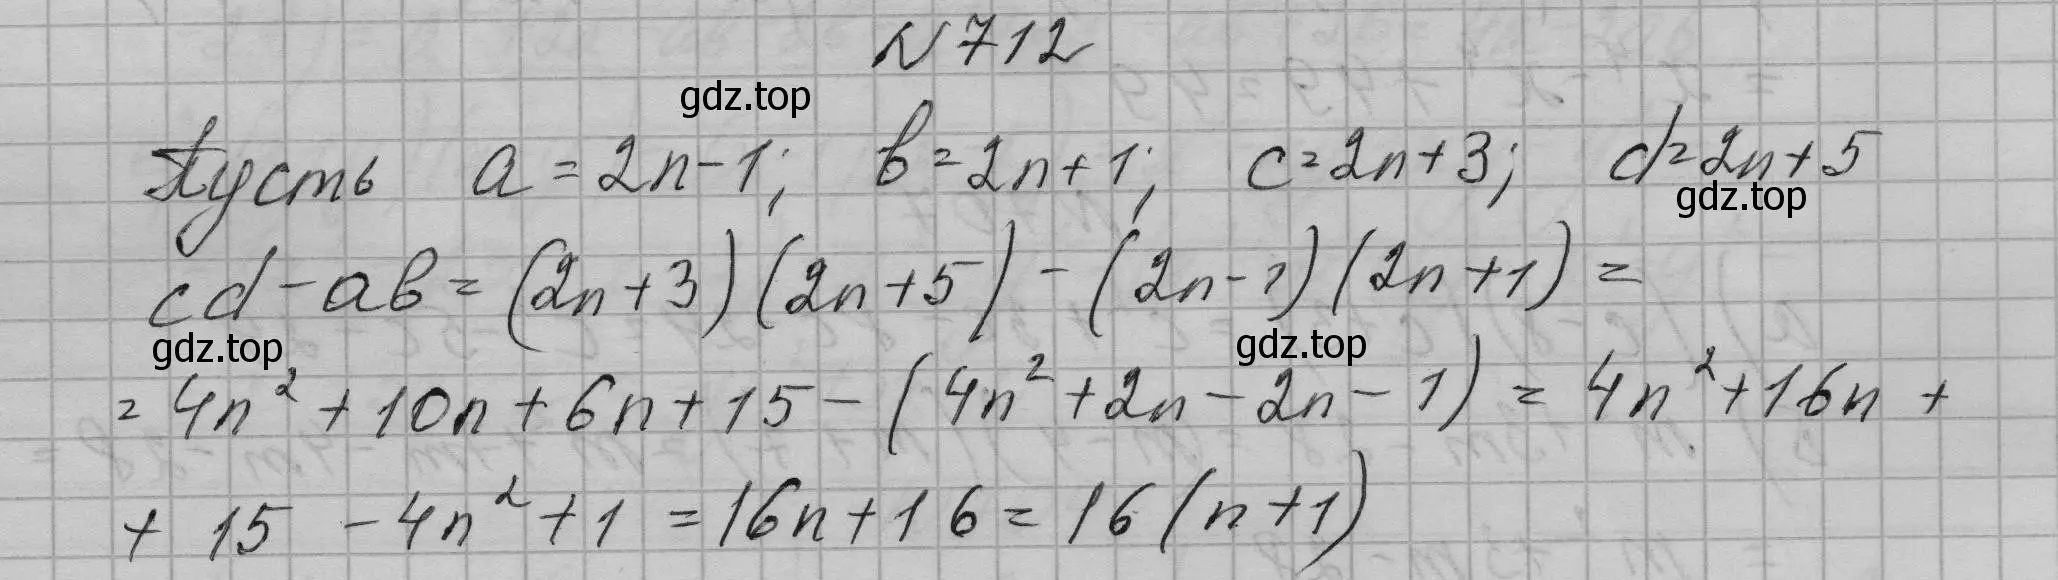 №712
gdz.top
Пусть a = 2n - 1; b = 2n + 1; c = 2n + 3; d = 2n + 5
gdz.top
cd - ab = (2n + 3)(2n + 5) - (2n - 1)(2n + 1) =
gdz.top gdz.top
= 4n² + 10n + 6n + 15 - (4n² + 2n - 2n - 1) = 4n² + 16n +
+ 15 - 4n² + 1 = 16n + 16 = 16(n + 1)